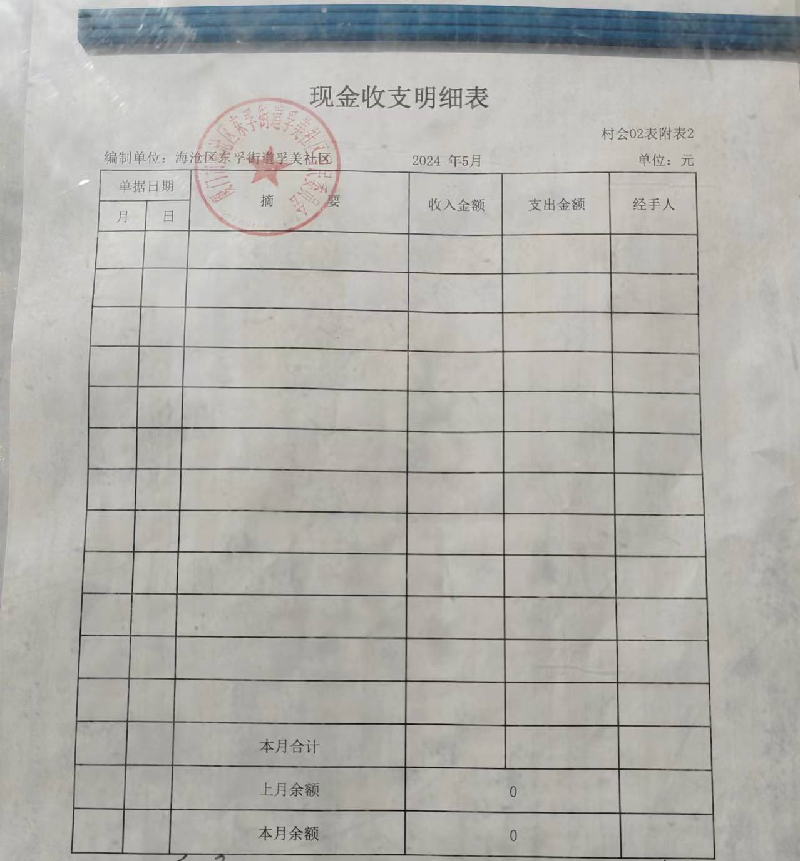 现金收支明细表
村会02表附表2
编制单位：海沧区东孚街道孚美社区 2024 年5月 单位：元
单据日期 摘 要 收入金额 支出金额 经手人
月 日
本月合计
上月余额 0
本月余额 0